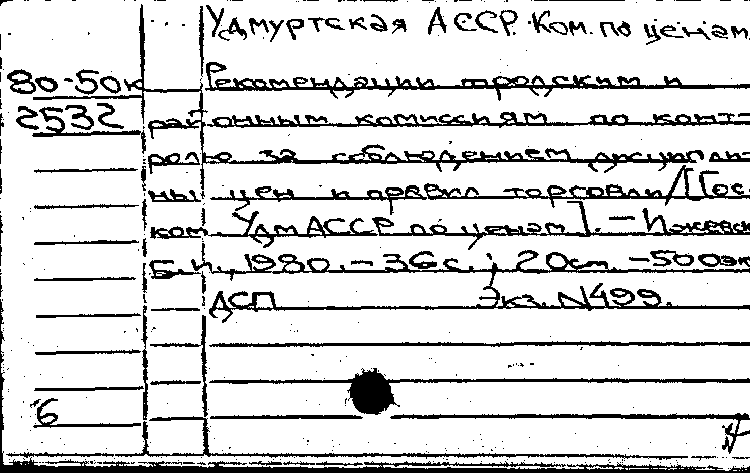 Удмуртская АССР. Ком. по ценам
80-50к Рекомендации городским и
2532 районным комиссиям по конт-
ролю за соблюдением дисципли-
ны цен и правил торговли/[Гос.
ком. УдмАССР по ценам]. — Ижевск
Б.и., 1980. – 36с.; 20см. – 500эк
ДСП Экз. N499.
6